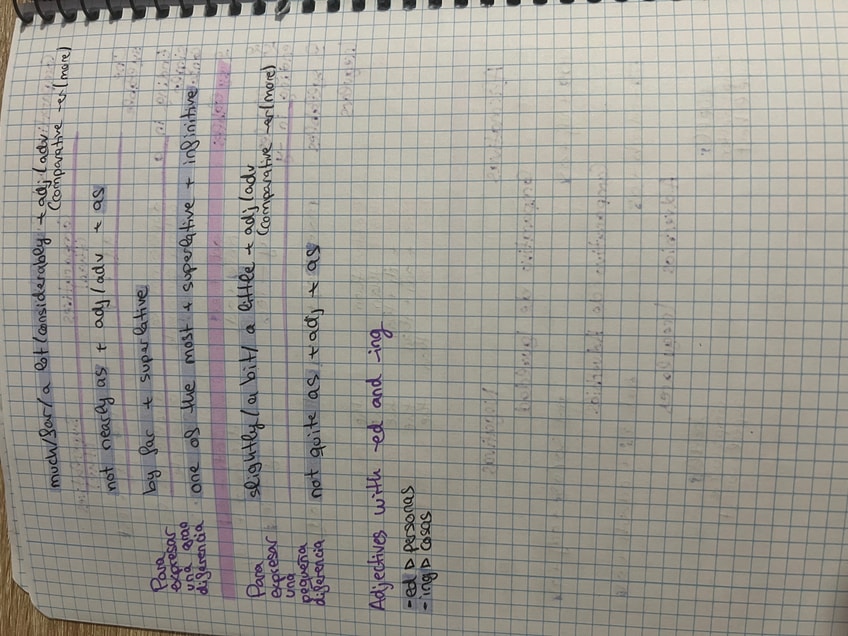 much/far/a lot/considerably + adj/adv
(comparative -er/more)
not nearly as + adj/adv + as
by far + superlative
one of the most + superlative + infinitive
Para
expresar
una gran
diferencia
slightly/a bit/a little + adj/adv
(comparative -er/more)
not quite as + adj + as
Para
expresar
una
pequeña
diferencia
Adjectives with -ed and -ing
-ed ▷ personas
-ing ▷ cosas